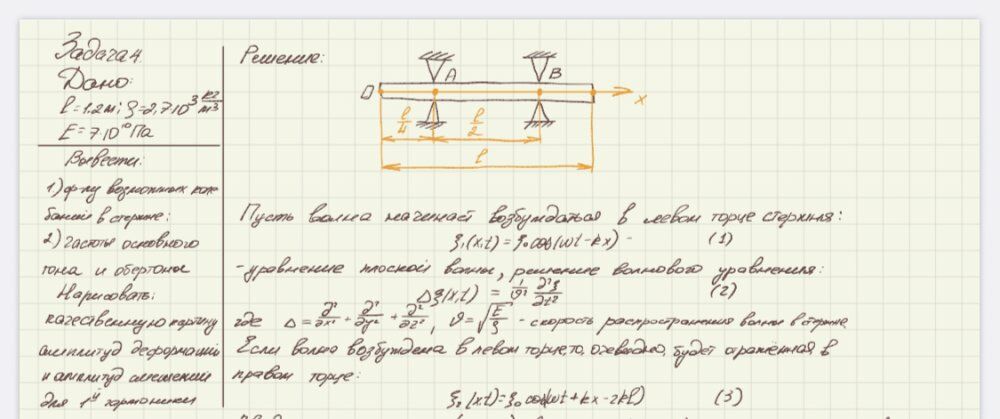 Задача 4.
Дано:
l = 1.2 м; ρ = 2,7·10³ кг/м³
E = 7·10¹⁰ Па
Вывести:
1) ф-лу возможных коле
баний в стержне:
2) частоты основного
тона и обертона
Нарисовать:
качественную картину
амплитуд деформаций
и амплитуд смещений
для 1ой гармоники
Решение:
A
B
O
x
l/4
l/2
l
Пусть волна начинает возбуждаться в левом торце стержня:
ξ₁(x,t) = ξ₀ cos(ωt - kx) - (1)
- уравнение плоской волны, решение волнового уравнения:
Δξ(x,t) = 1/ϑ² ∂²ξ/∂t² (2)
где Δ = ∂²/∂x² + ∂²/∂y² + ∂²/∂z², ϑ = √(E/ρ) - скорость распространения волны в стержне.
Если волна возбуждена в левом торце, то, очевидно, будет отражённая в
правом торце:
ξ₂(x,t) = ξ₀ cos(ωt + kx - 2kl) (3)